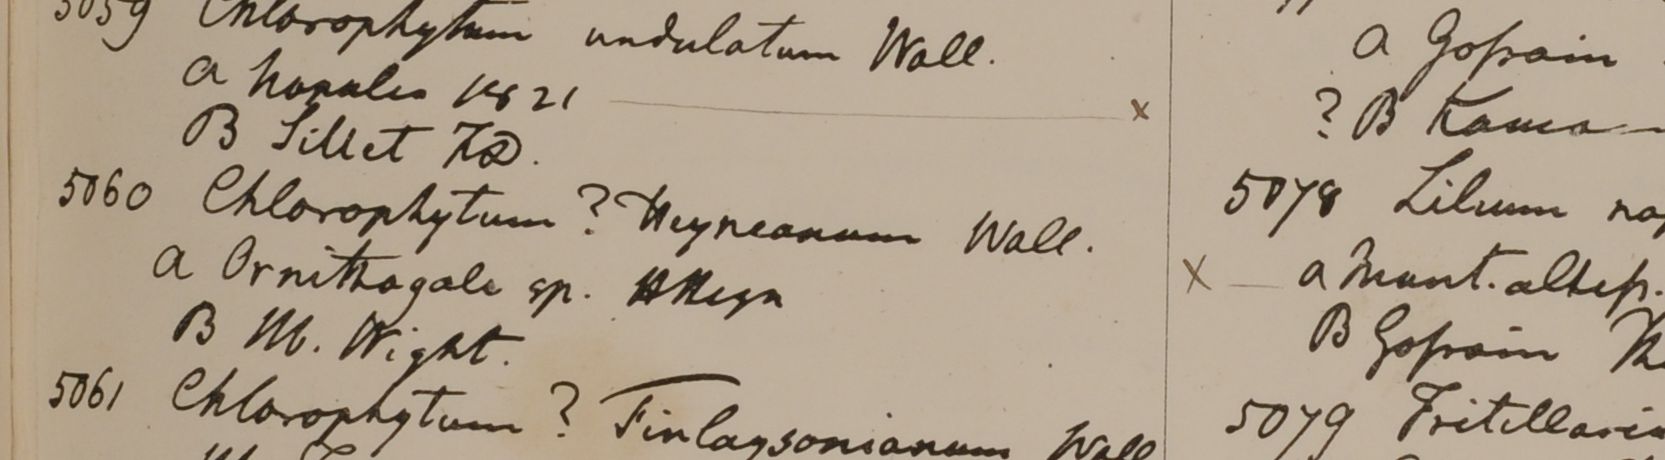 5059 Chlorophytum undulatum Wall.
a Napalia 1821
B Sillet FD.
5060 Chlorophytum ? Heyneanum Wall.
a Ornithogale sp. H Heyn
B M. Wight.
5061 Chlorophytum ? Finlaysonianum Wall
a Gossain
? B Kamao
5078 Lilium
X a Mont. altiss.
B Gossain
5079 Fritillaria